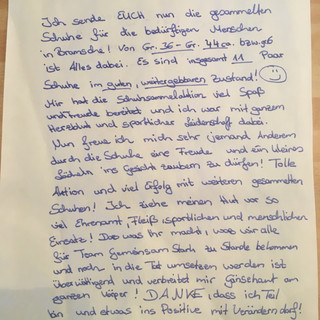 Ich sende EUCH nun die gesammelten
Schuhe für die bedürftigen Menschen
in Bramsche! Von Gr. 36 - Gr. 44 ca. bzw.
ist Alles dabei. Es sind insgesamt 11 Paar
Schuhe im guten, weitergebbaren Zustand!
Mir hat die Schuhsammelaktion viel Spaß
und Freude bereitet und ich war mit ganzem
Herzblut und sportlicher Leidenschaft dabei.
Nun freue ich mich sehr jemand Anderem
durch die Schuhe eine Freude und ein kleines
Lächeln ins Gesicht zaubern zu dürfen! Tolle
Aktion und viel Erfolg mit weiteren gesammelten
Schuhen! Ich ziehe meinen Hut vor so
viel Ehrenamt, Fleiß, sportlichen und menschlichen
Einsatz! Das was Ihr macht, was wir alle
für Team Gemeinsam Stark zu Stande bekommen
und noch in die Tat umsetzen werden ist
überwältigend und verbreitet mir Gänsehaut am
ganzen Körper! DANKE, dass ich Teil
bin und etwas ins Positive mit Verändern darf!